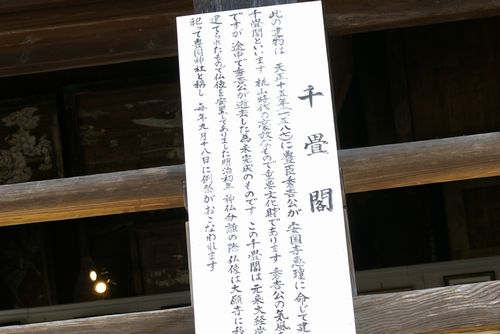 千畳閣
此の建物は 天正十五年(一五八七)に豊臣秀吉公が 安国寺恵瓊に命じて建
千畳閣といいます 桃山時代の豪放なもので重要文化財であります 秀吉公の気風
ですが 途中で秀吉公が逝去した為 未完成のものです この千畳閣は 元来大経堂
建てられたもので仏像を安置してありました 明治初年 神仏分離の際 仏像は大願寺に移
祀って豊国神社と称し 毎年九月十八日に例祭がおこなわれます